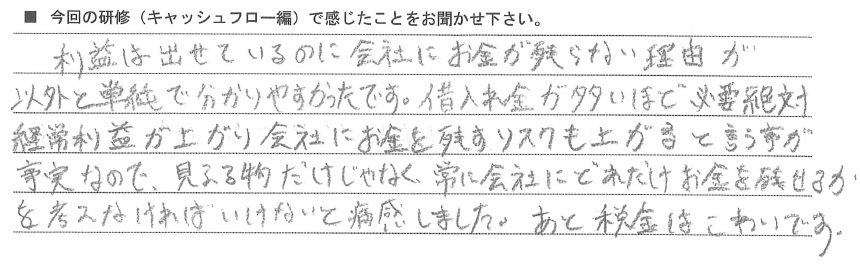 ■ 今回の研修（キャッシュフロー編）で感じたことをお聞かせ下さい。
利益は出せているのに会社にお金が残らない理由が
以外と単純で分かりやすかったです。借入れ金が多いほど必要絶対
経常利益が上がり会社にお金を残すリスクも上がると言う事が
事実なので、見える物だけじゃなく、常に会社にどれだけお金を残せるか
を考えなければいけないと痛感しました。あと税金はこわいです。